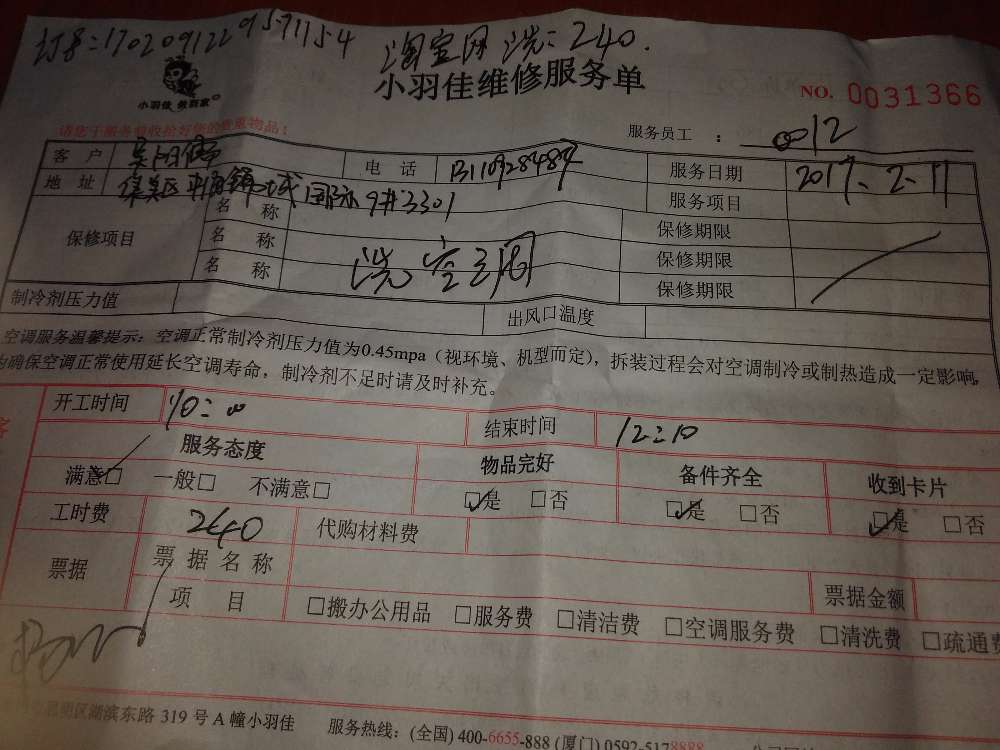 淘宝网 洗:240.
小羽佳 做到家
小羽佳维修服务单
NO. 0031366
服务员工 : 0012
请您于服务验收拾好您的贵重物品!
客户 电话 服务日期 2017.2.11
地址 集美区 国际 9#3301 服务项目
保修项目 名称 保修期限
名称 洗空调 保修期限
名称 保修期限
制冷剂压力值 出风口温度
空调服务温馨提示:空调正常制冷剂压力值为0.45mpa(视环境、机型而定),拆装过程会对空调制冷或制热造成一定影响,
为确保空调正常使用延长空调寿命,制冷剂不足时请及时补充。
开工时间 10:00 结束时间 12:10
服务态度 物品完好 备件齐全 收到卡片
满意□ 一般□ 不满意□ □是 □否 □是 □否 □是 □否
工时费 240 代购材料费
票据 票据名称 票据金额
项目 □搬办公用品 □服务费 □清洁费 □空调服务费 □清洗费 □疏通费
思明区湖滨东路 319 号 A 幢小羽佳 服务热线:(全国) 400-6655-888 (厦门) 0592-5178888